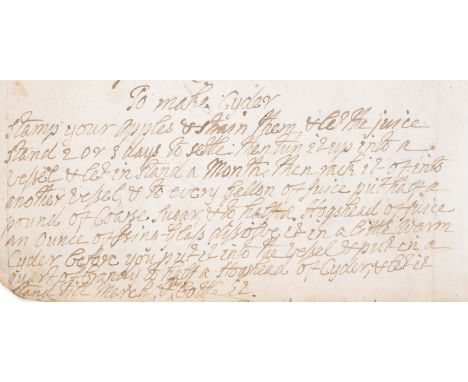 To make Cyder
Stamp your apples & strain them, & let the juice
stand 2 or 3 days to settle then tun it up into a
vessel & let it stand a Month then rack it of into
another vessel, & to every gallon of juice put half a
pound of Coerse Sugar & to half a Hogshead of juice
an Ounce of Ising glass disolve it in a little warm
Cyder, before you put it into the vessel & put in a
quart of brandy to half a Hogshead of Cyder, & let it
stand till March, then bottle it.